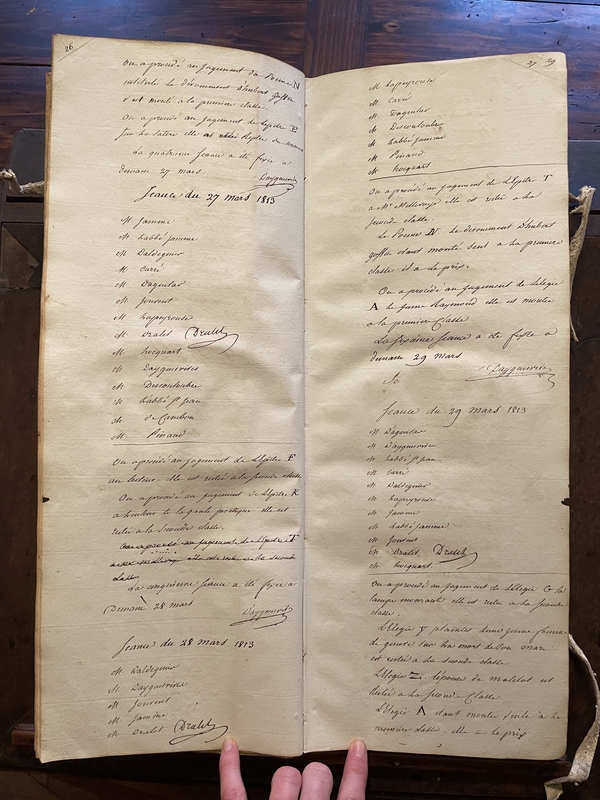 26
On a procédé au jugement du Poeme N
intitulé le dévouement d'hubert goffin
il est monté à la premiere classe.
On a procédé au jugement de l'épitre E
Sur la Satire elle est
La quatrieme Seance a été fixée a
demain 27 mars.
Dayguevives
Seance du 27 mars 1813
M. jamme
M. l'abbé jamme
M. Daldeguier
M. Carré
M. Daguilar
M. jouvent
M. lapeyrouse
M. Dralet Dralet
M. hocquart
M. Dayguevives
M. Descouloubre
M. l'abbé st jean
M. de Cambon
M. Pinaud
On a procédé au jugement de l'épitre F
au lecteur. elle est restée a la seconde classe
On a procédé au jugement de l'épitre K
a l'honneur de la gaule poetique elle est
restée a la seconde classe.
On a procédé au jugement de l'épitre T
a elle est restée a la seconde
classe
La cinquieme Seance a été fixée a
Demain 28 mars
Dayguevives
Seance du 28 mars 1813
M. Daldeguier
M. Dayguevives
M. jouvent
M. jamme
M. Dralet Dralet
29
M. lapeyrouse
M. Carré
M. Daguilar
M. Descouloubre
M. l'abbé jamme
M. Pinaud
M. hocquart
On a procédé au jugement de L'Epitre T
a Mr Millevoye elle est restée a la
seconde classe.
Le Poeme N le dévouement d'hubert
goffin étant monté seul a la premiere
classe il a le prix.
On a procédé au jugement de l'elegie
A le jeune Raymond elle est montée
a la premiere Classe.
La sixieme Seance a été fixée a
demain 29 mars
Dayguevives
Se
Seance du 29 mars 1813
M. Daguilar
M. Dayguevives
M. l'abbé st jean
M. Carré
M. Daldeguier
M. lapeyrouse
M. jamme
M. l'abbé jamme
M. jouvent
M. Dralet Dralet
M. hocquart.
On a procédé au jugement de l'Elegie G la
lampe mourant elle est restée a la seconde
classe.
L'Elegie Y plaintes d'une jeune femme
de guerre sur la mort de Son mari
est restée a la seconde classe
L'Elegie Z l'épouse du matelot est
Restée a la Seconde Classe.
L'Elegie A étant montée seule a la
premiere classe, elle a le prix